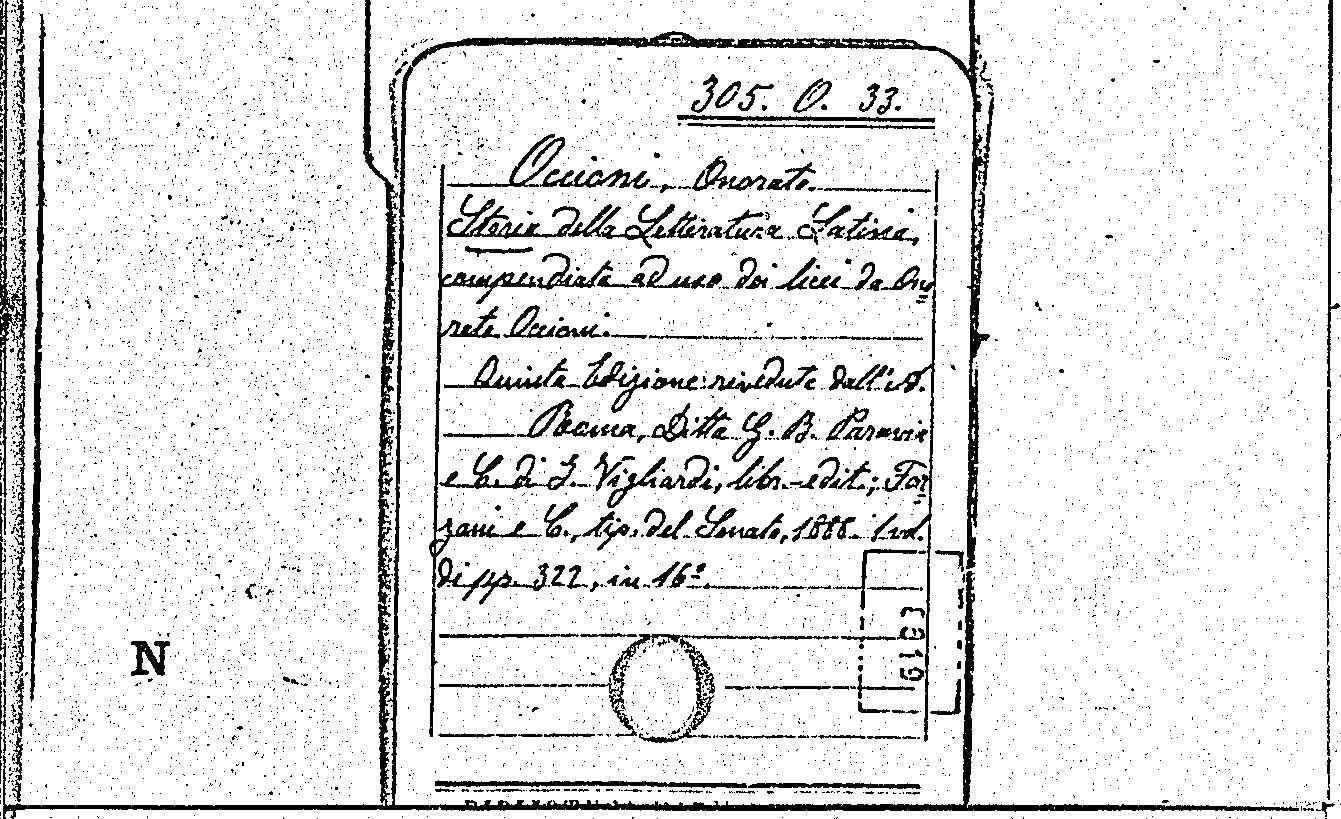 305. O. 33.
Occioni, Onorato.
Storia della Letteratura Latina,
compendiata ad uso dei licei da Ono
rato Occioni.
Quinta Edizione riveduta dall'A.
Roma, Ditta G. B. Paravia
e C. di I. Vigliardi, libr.-edit.; For
zani e C., tip. del Senato, 1888. 1 vol.
di pp. 322, in 16º.
N